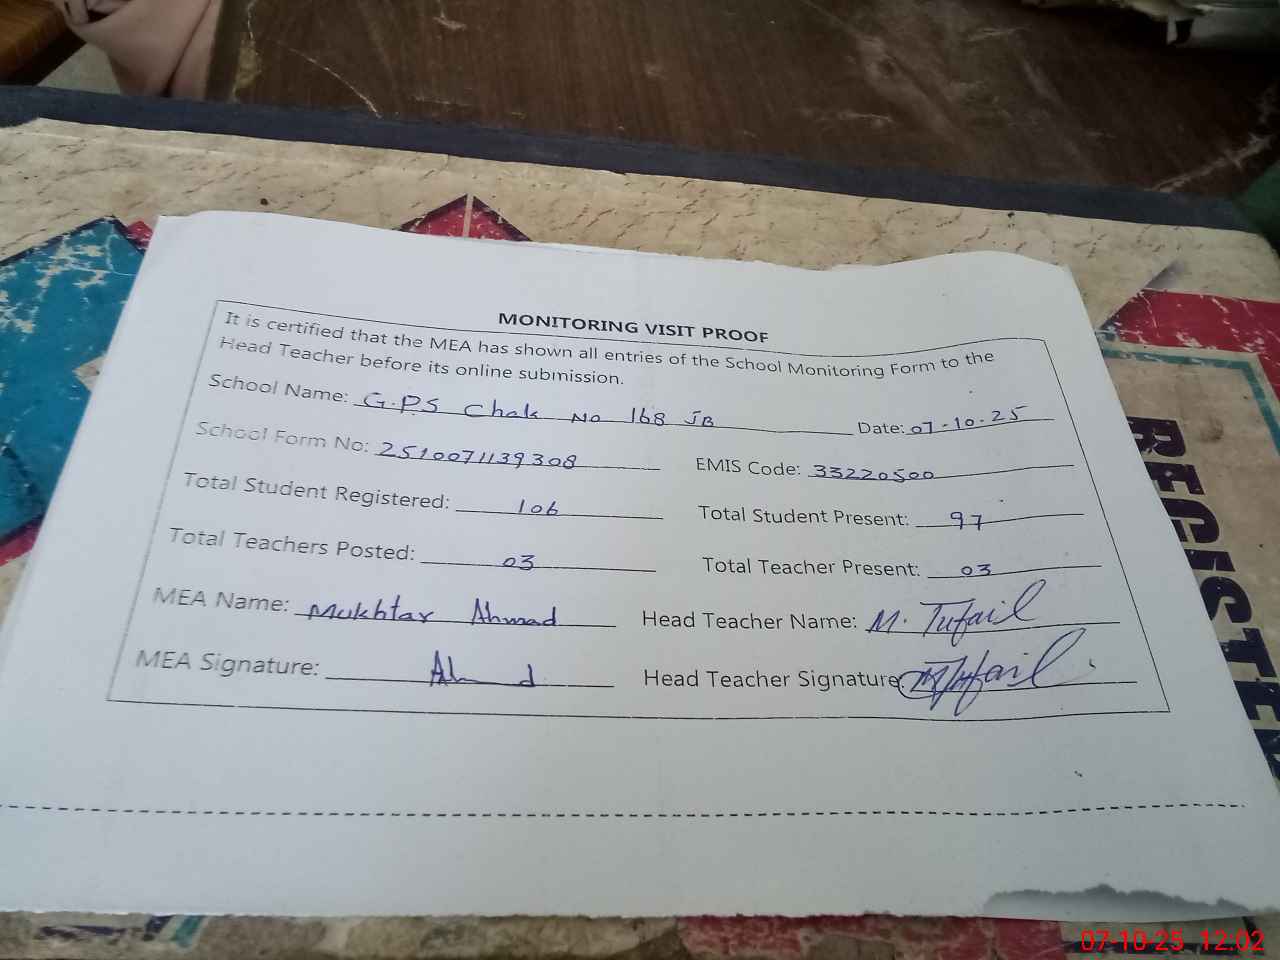 MONITORING VISIT PROOF
It is certified that the MEA has shown all entries of the School Monitoring Form to the
Head Teacher before its online submission.
School Name: G.PS Chak No 168 JB Date: 07-10-25
School Form No: 2510071139308 EMIS Code: 33220500
Total Student Registered: 106 Total Student Present: 97
Total Teachers Posted: 03 Total Teacher Present: 03
MEA Name: Mukhtar Ahmad Head Teacher Name: M. Tufail
MEA Signature: Ahmad Head Teacher Signature: M. Tufail
REGISTER
07-10-25 12:02